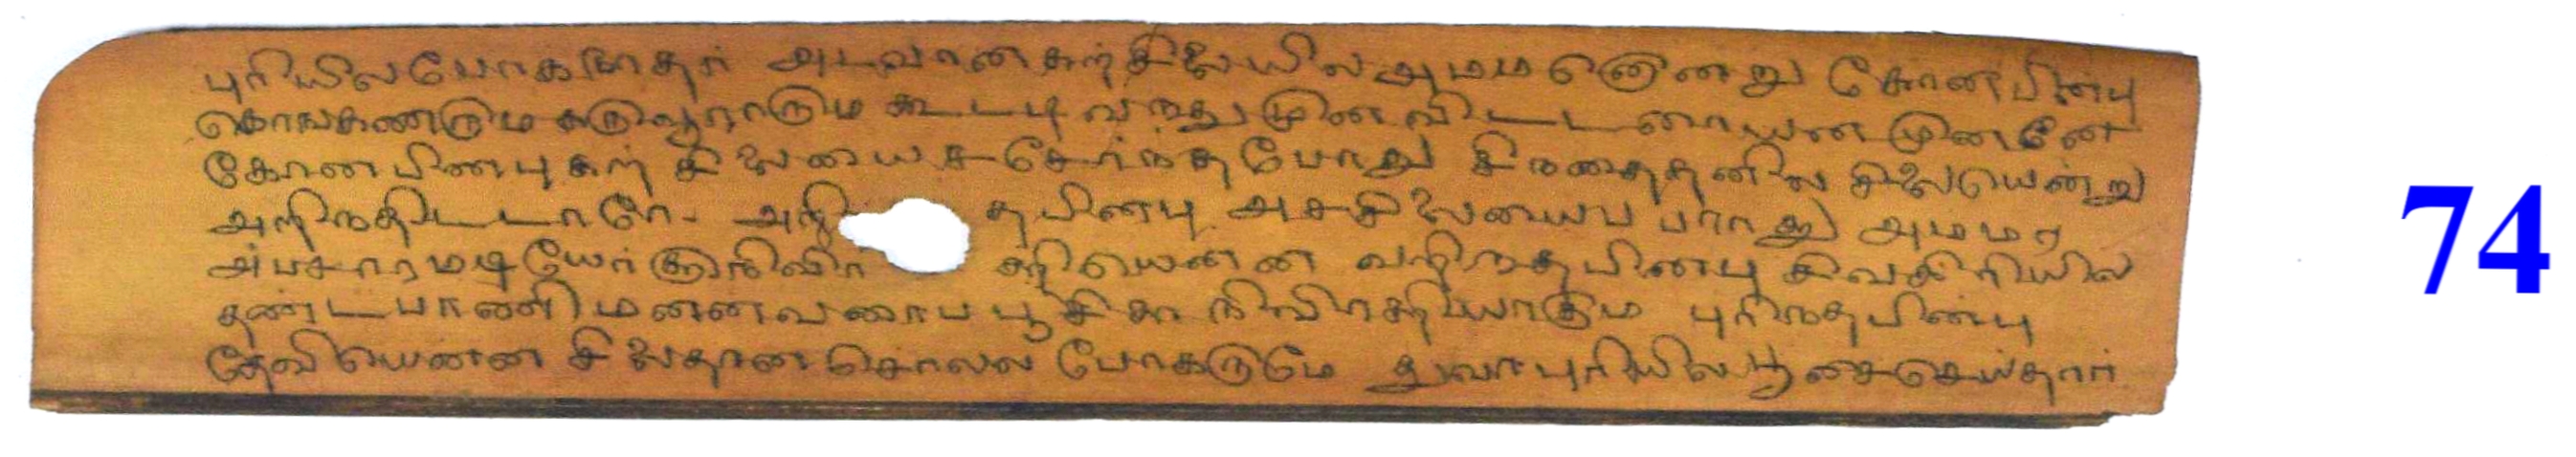 புரியில போகநாதர் அடவான கற்சிலையில அமமனெனறு கோனபினபு
கொஙகணரும கருவூராரும கூடடி வநது முன விடடனாயன முனனே
கோனபினபு கற சிலையைச சேர்நதபோது சிநதைதனில சிலையென்று
அறிநதிடடாரே. அறி தபினபு அசசிலையைப பாரது அமமர
அபசாரமடியேர் சரியெனன வறிநதபினபு சிவகிரியில
தண்டபாணி மனனவனாப பூசி புரிநதபினபு
தேவியெனன சிலைதான சொலல போகருமே துவாபுரியில பூசைசெய்தார்
74